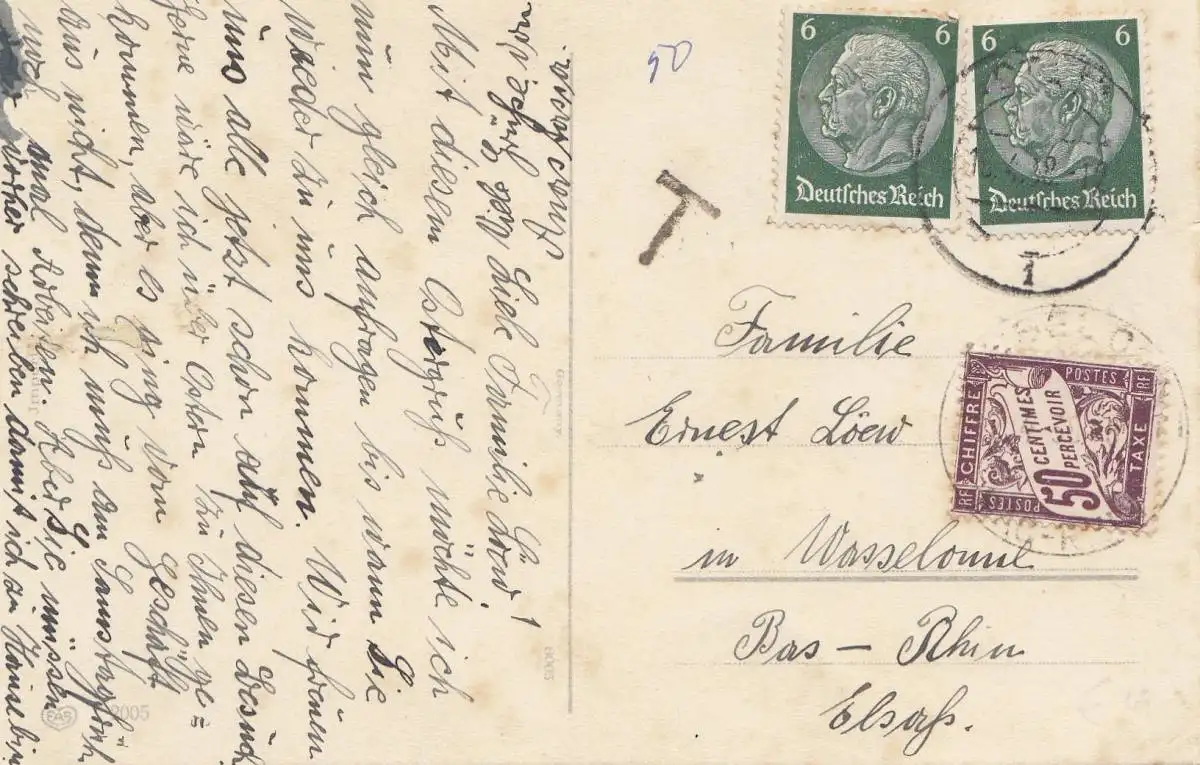 Mit diesem Ostergruß möchte ich
nun gleich anfragen bis wann Sie
wieder zu uns kommen. Wir freuen
uns alle jetzt schon auf diesen Besuch
Gerne wäre ich über Ostern zu Ihnen ge=
kommen, aber es ging vom Geschäft
aus nicht, denn ich muß am Samstag früh
noch mal Arbeiten. Aber Sie müssen
vorher schreiben damit ich zu Hause bin
Liebe Familie Löw!
EAS
2005
8005
50
T
6 6
Deutsches Reich
6 6
Deutsches Reich
1
Familie
Ernest Löew
in Wasselonne
Bas – Rhin
Elsaß.
CHIFFRE
POSTES
RF
TAXE
50 CENTIMES
À
PERCEVOIR
POSTES
RF